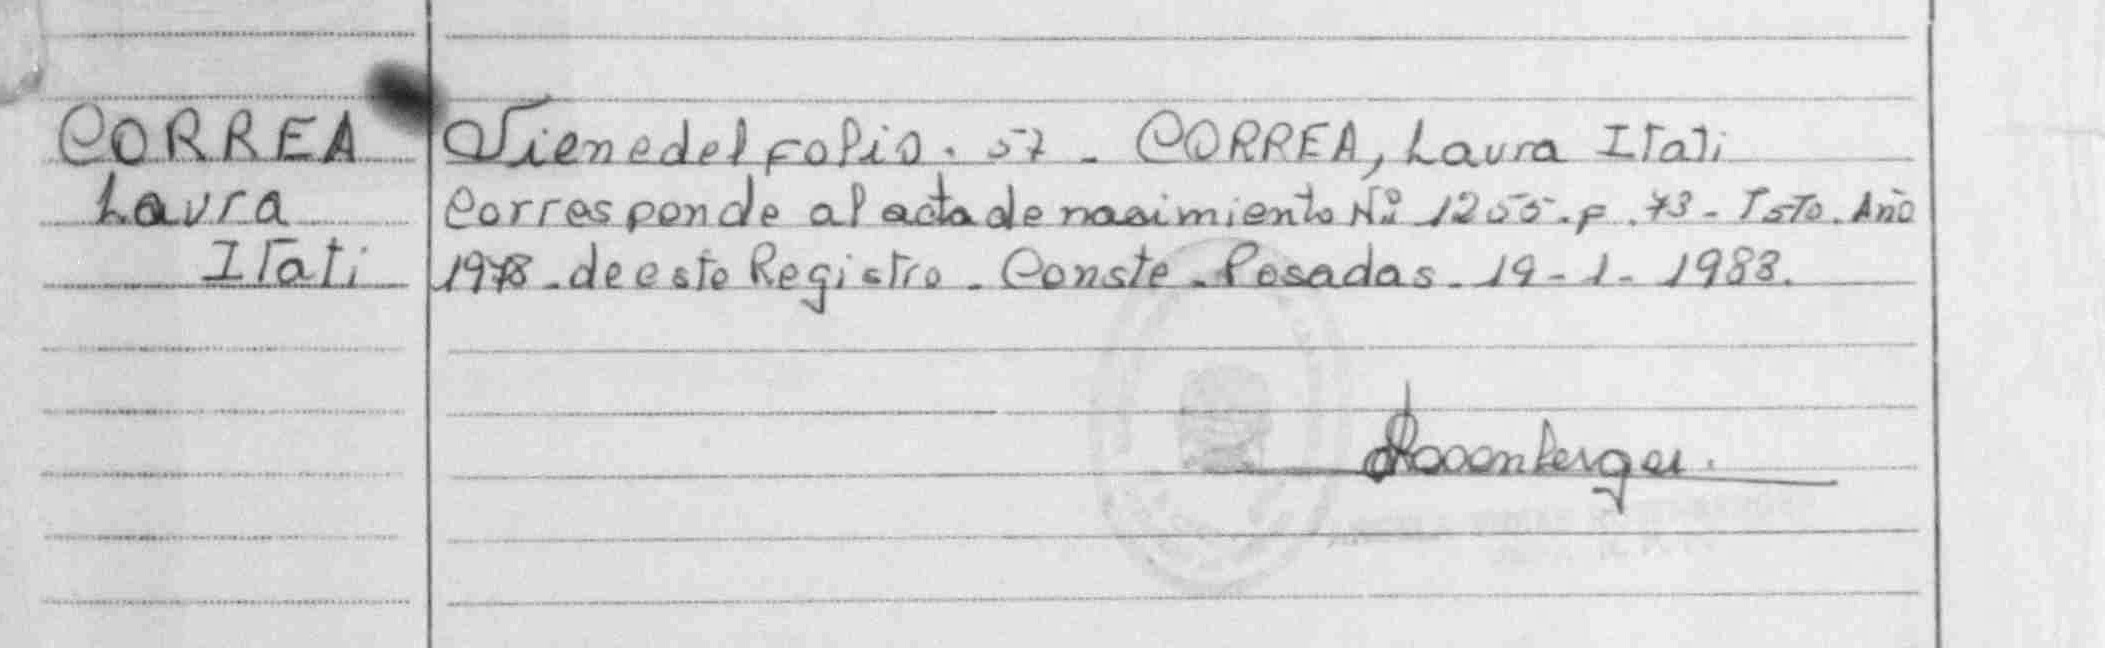 CORREA
Laura
Itati
Viene del folio. 57 - CORREA, Laura Itati
Corresponde al acta de nacimiento Nº 1255. F. 73 - Tº Año
1978 - de este Registro - Conste - Posadas - 19 - 1 - 1983.